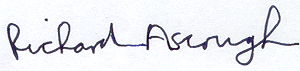 Richard Ascough